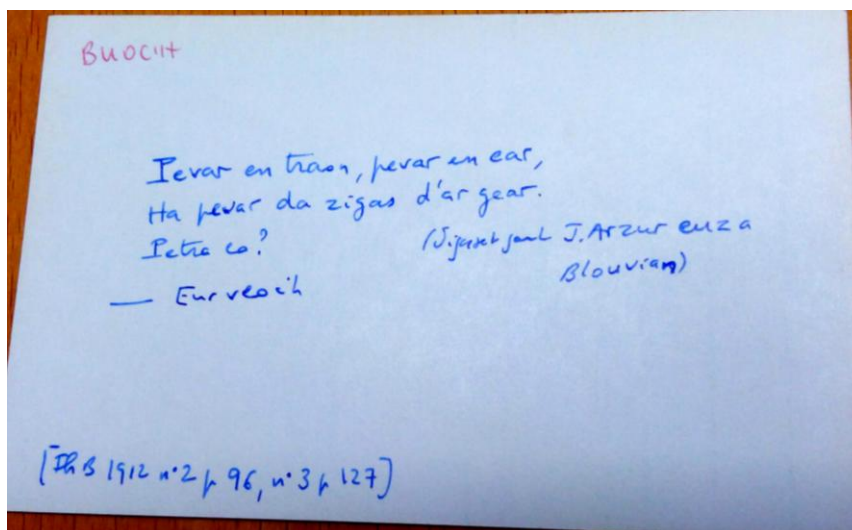 BUOC'H
Pevar en traon, pevar en ear,
Ha pevar da zigas d'ar gear.
Petra eo?
(Digaset gant J. Arzur euz a
Blouvian)
— Eur veoc'h
[IhB 1912 n°2 p 96, n°3 p 127]